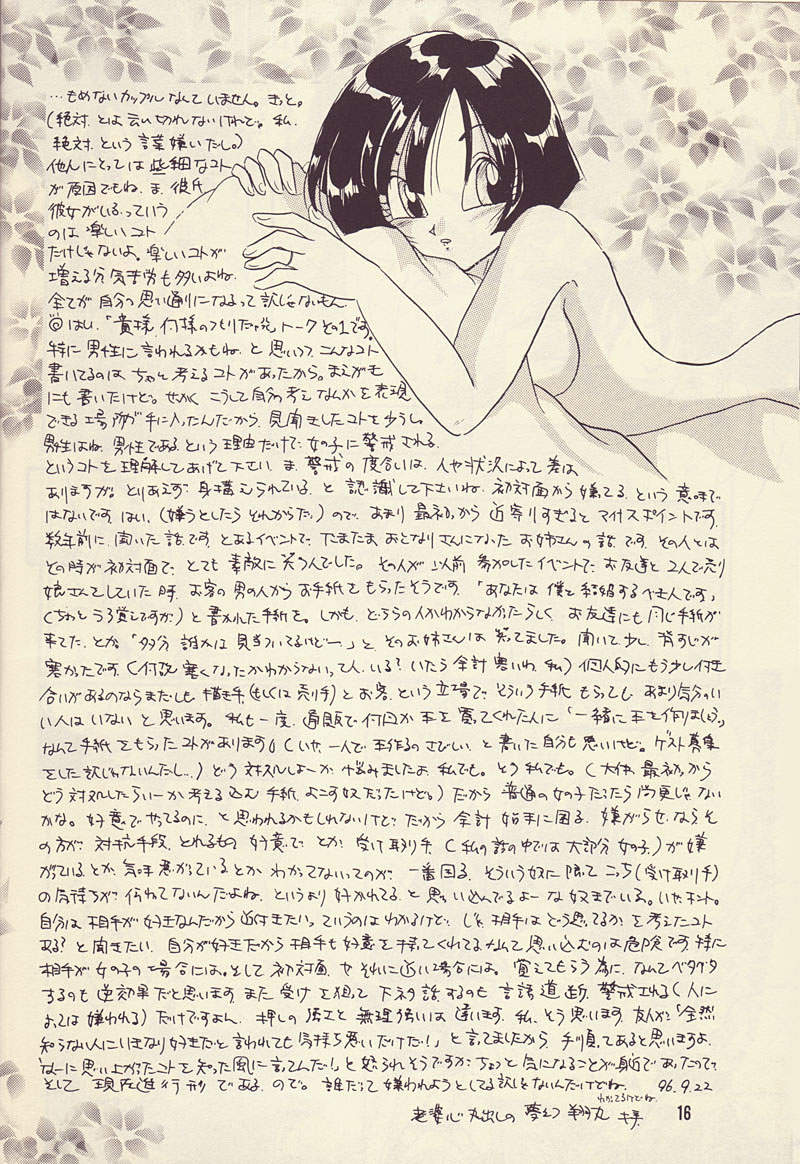 …もめないカップルなんていません。きっと。
(絶対、とは云い切れないけれど。私、
絶対、という言葉嫌いだし。)
他人にとっては些細なコト
が原因でもね、ま、彼氏
彼女がいるっていう
のは楽しいコト
だけじゃないよ。楽しいコトが
増える分気苦労も多いよね。
全てが自分の思い通りになるって訳じゃないもん
◎はい、「貴様、何様のつもりだっ元トークその1です。
特に男性に言われるかもね、と思いつつ、こんなコト
書いてるのは ちゃんと考えるコトがあったから。まえがき
にも書いたけど。せっかくこうして自分の考えなんかを表現
できる場所が手に入ったんだから、見聞きしたコトを少し。
男性はね、男性であるという理由だけで、女の子に警戒される、
というコトを理解してあげて下さい、ま、警戒の度合いは、人や状況によって差は
ありますが。とりあえず身構えられている、と認識して下さいね。初対面から嫌ってる、という意味で
はないです、はい。(嫌うとしたらそれからだっ)ので、あまり最初から近寄りすぎるとマイナスポイントです。
数年前に聞いた話です。とあるイベントで、たまたまおとなりさんになったお姉さんの話です。その人とは
その時が初対面で、とても素敵に笑う人でした。その人が以前参加したイベントで、お友達と2人で売り
娘さんをしていた時、お客の男の人からお手紙をもらったそうです。「あなたは僕と結婚するべき人です」
(ちょっとうろ覚えですが)と書かれた手紙を。しかも、どちらの人かわからなかったらしく、お友達にも同じ手紙が
来てた、とか。「多分誰かは見当ついてるけどー」と、そのお姉さんは笑ってました。聞いて少し、背すじが
寒かったです。(何故寒くなったかわからないって人、いる?いたら余計悪いわ、私)個人的にもう少し付き
合いがあるのならまだしも描き手(もしくは売り手)とお客、という立場で、そういう手紙もらっても、あまり気分のい
い人はいないと思います。私も一度、通販で何回か本を買ってくれた人に「一緒に本を作りましょう」
なんて手紙をもらったコトがあります。(いや、一人で本作るのさびしい、と書いた自分も悪いけど。ゲスト募集
をした訳じゃないんだし…)どう対処しようか悩みましたよ、私でも。そう私でも。(大体、最初っから
どう対処したらいーか考え込む手紙、よこす奴だったけど。)だから普通の女の子だったら尚更じゃない
かな。好意でやってるのに、と思われるかもしれないけど、だから余計始末に困る。嫌がらせならそ
の方が対抗手段、とれるもの。好意で、とか、受け取り手(私の話の中では大部分女の子。)が嫌
がっているとか、気味悪がっているとか、わかってないってのが、一番困る。そういう奴に限ってこっち(受け取り手)
の気持ちが伝わってないんだよね、というより好かれてる、と思い込んでるよーな奴までいる。いや、ホント。
自分は相手が好きなんだから近付きたいっていうのはわかるけど、じゃ、相手はどう思ってるかを考えたコト
ある?と聞きたい。自分が好きだから相手も好意を持ってくれてる、なんて思い込むのは危険です。特に
相手が女の子の場合には。そして初対面、や、それに近い場合には。覚えてもらう為に、なんてベタベタ
するのも逆効果だと思います。また受けを狙って下ネタ話するのも言語道断、警戒される(人に
よっては嫌われる)だけですよん。押しの強さと無理強いは違います。私、そう思います。友人が「全然
知らない人にいきなり好きだと言われても気持ち悪いだけだ!」と言ってましたから、手順ってあると思いますよ。
「なーに思い上がったコトを知った風に言ってんだ!」と怒られそうですが、ちょっと気になることが身近であったので、
そして現在進行形である、ので。誰だって嫌われようとしてる訳じゃないんだけどね。 96.9.22
わかってるけどね。
老婆心丸出しの 夢幻 翔丸
16